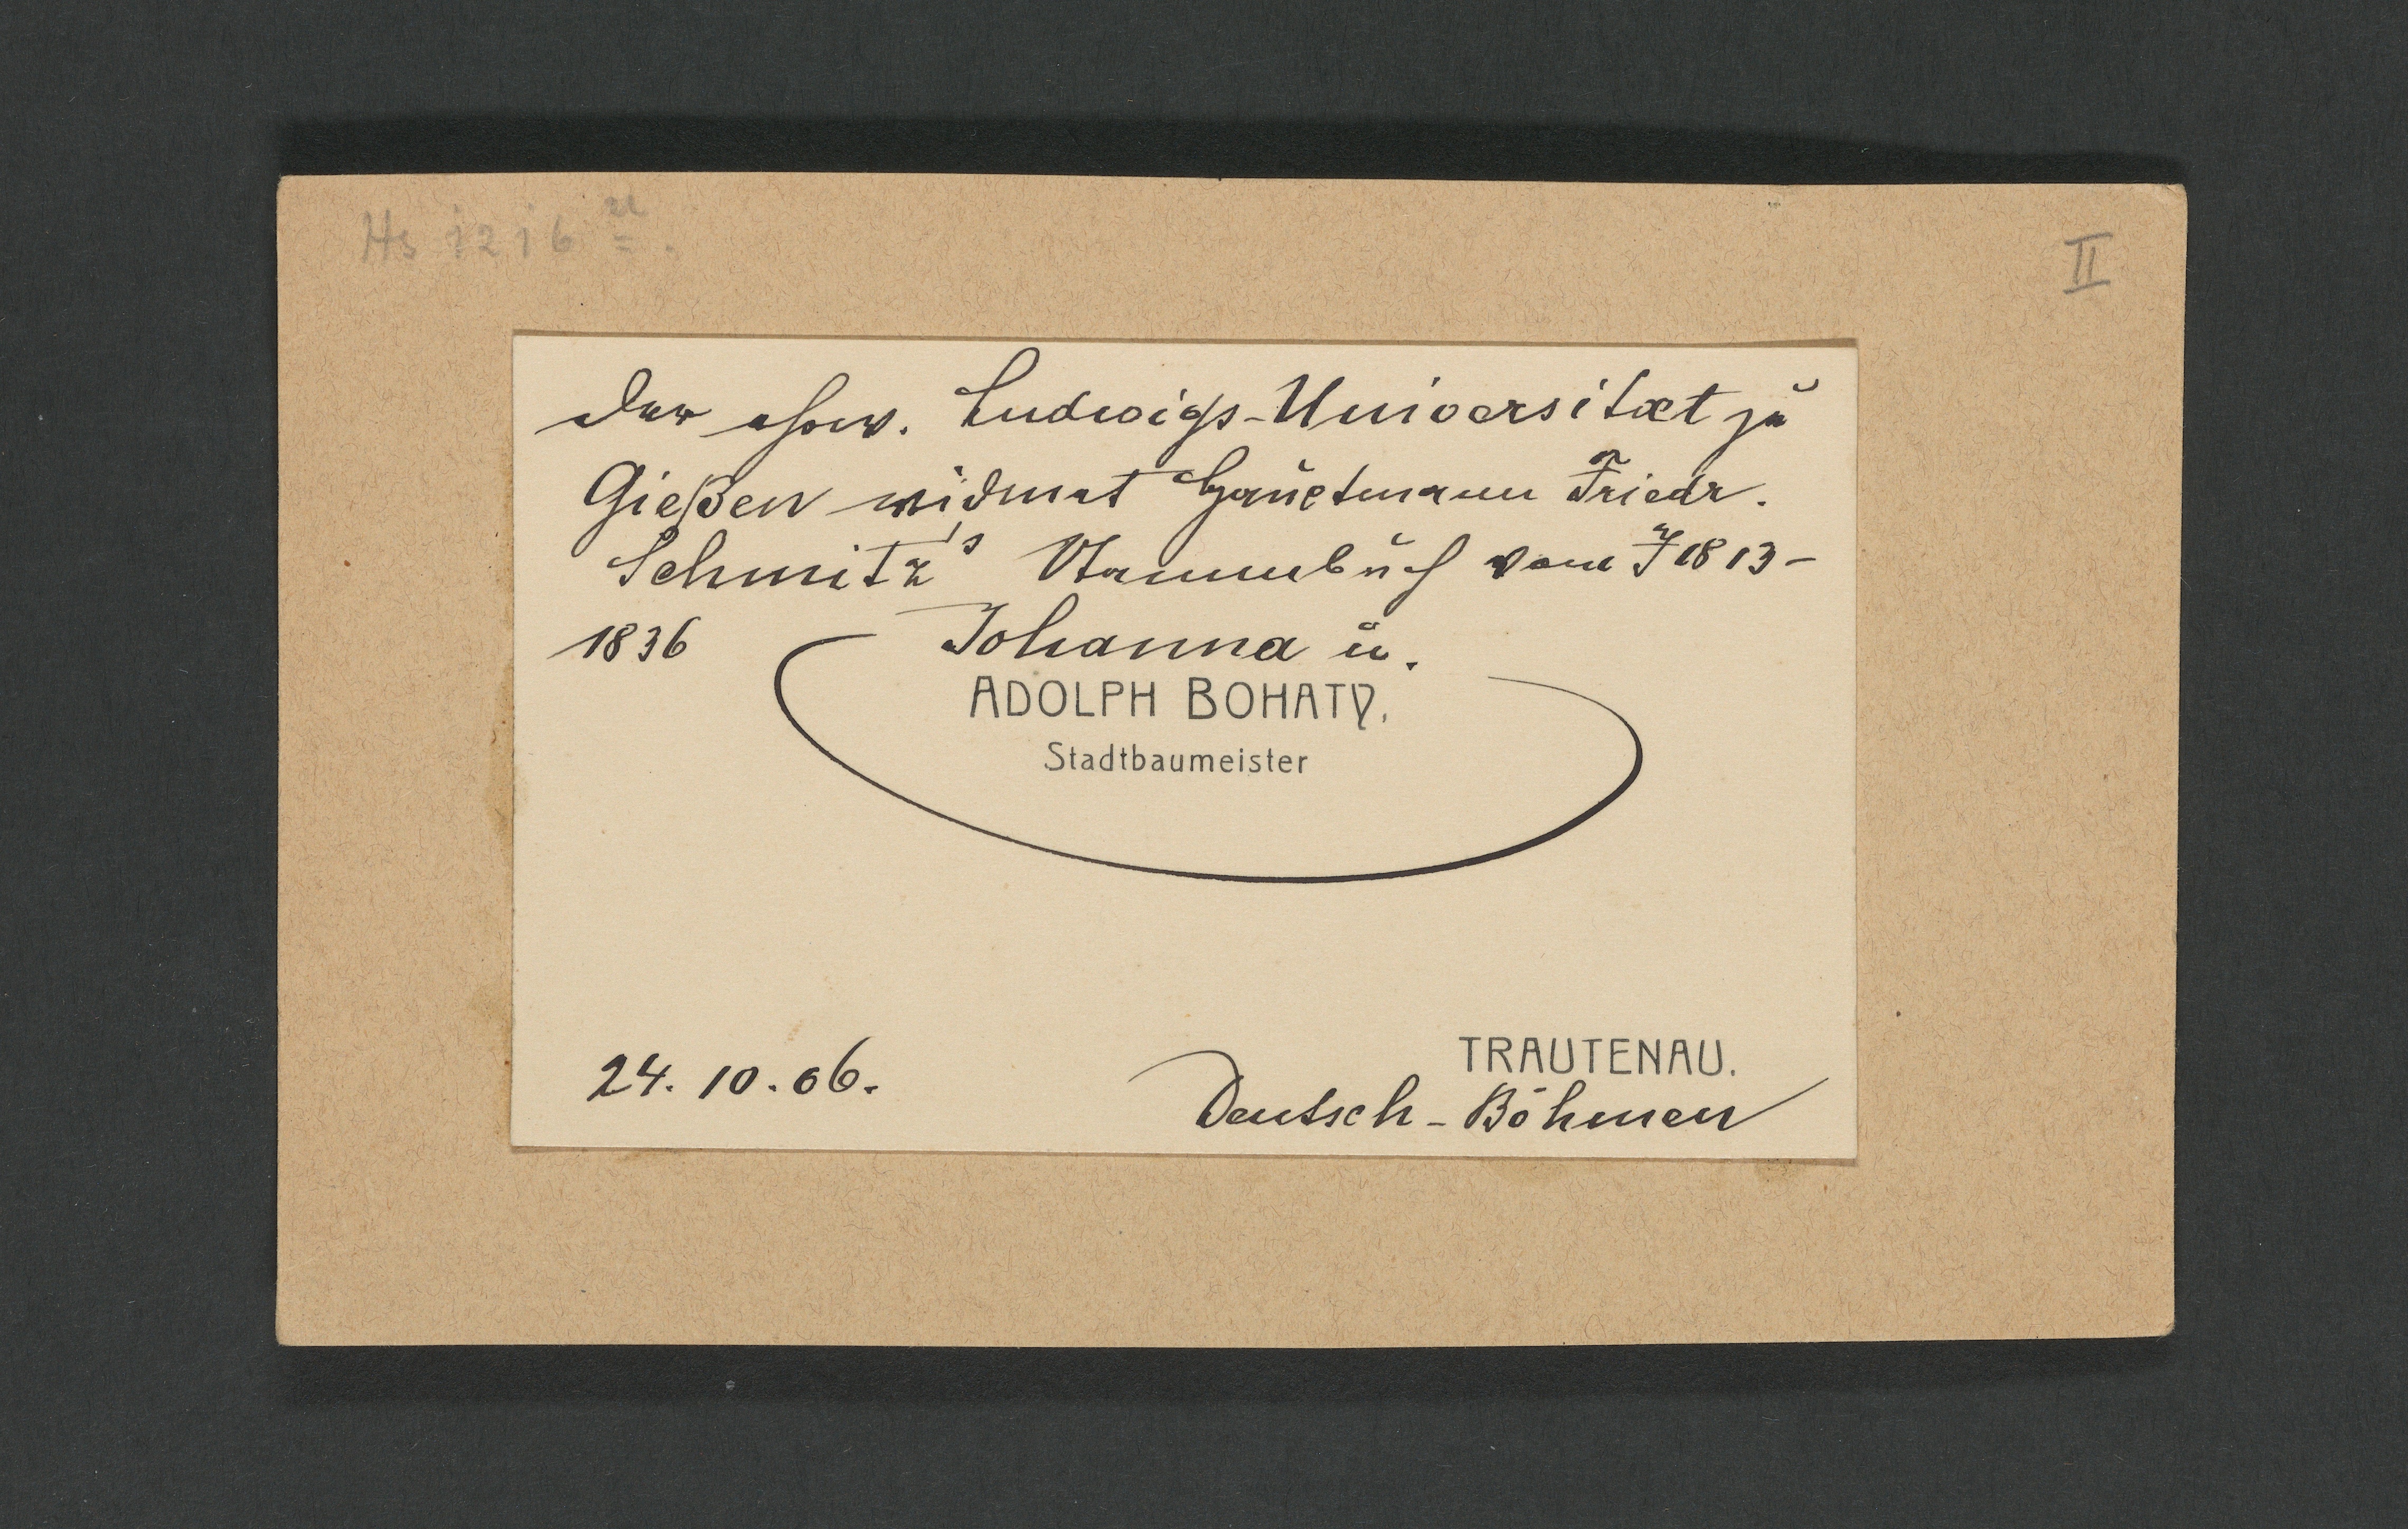 Hs 1216 u.
II
Der ehrw. Ludwigs-Universitæt zu
Gießen widmet Hauptmann Friedr.
Schmitz's Stammbuch vom J 1813-
1836 Johanna u.
ADOLPH BOHATY.
Stadtbaumeister
24. 10. 06.
TRAUTENAU.
Deutsch-Böhmen